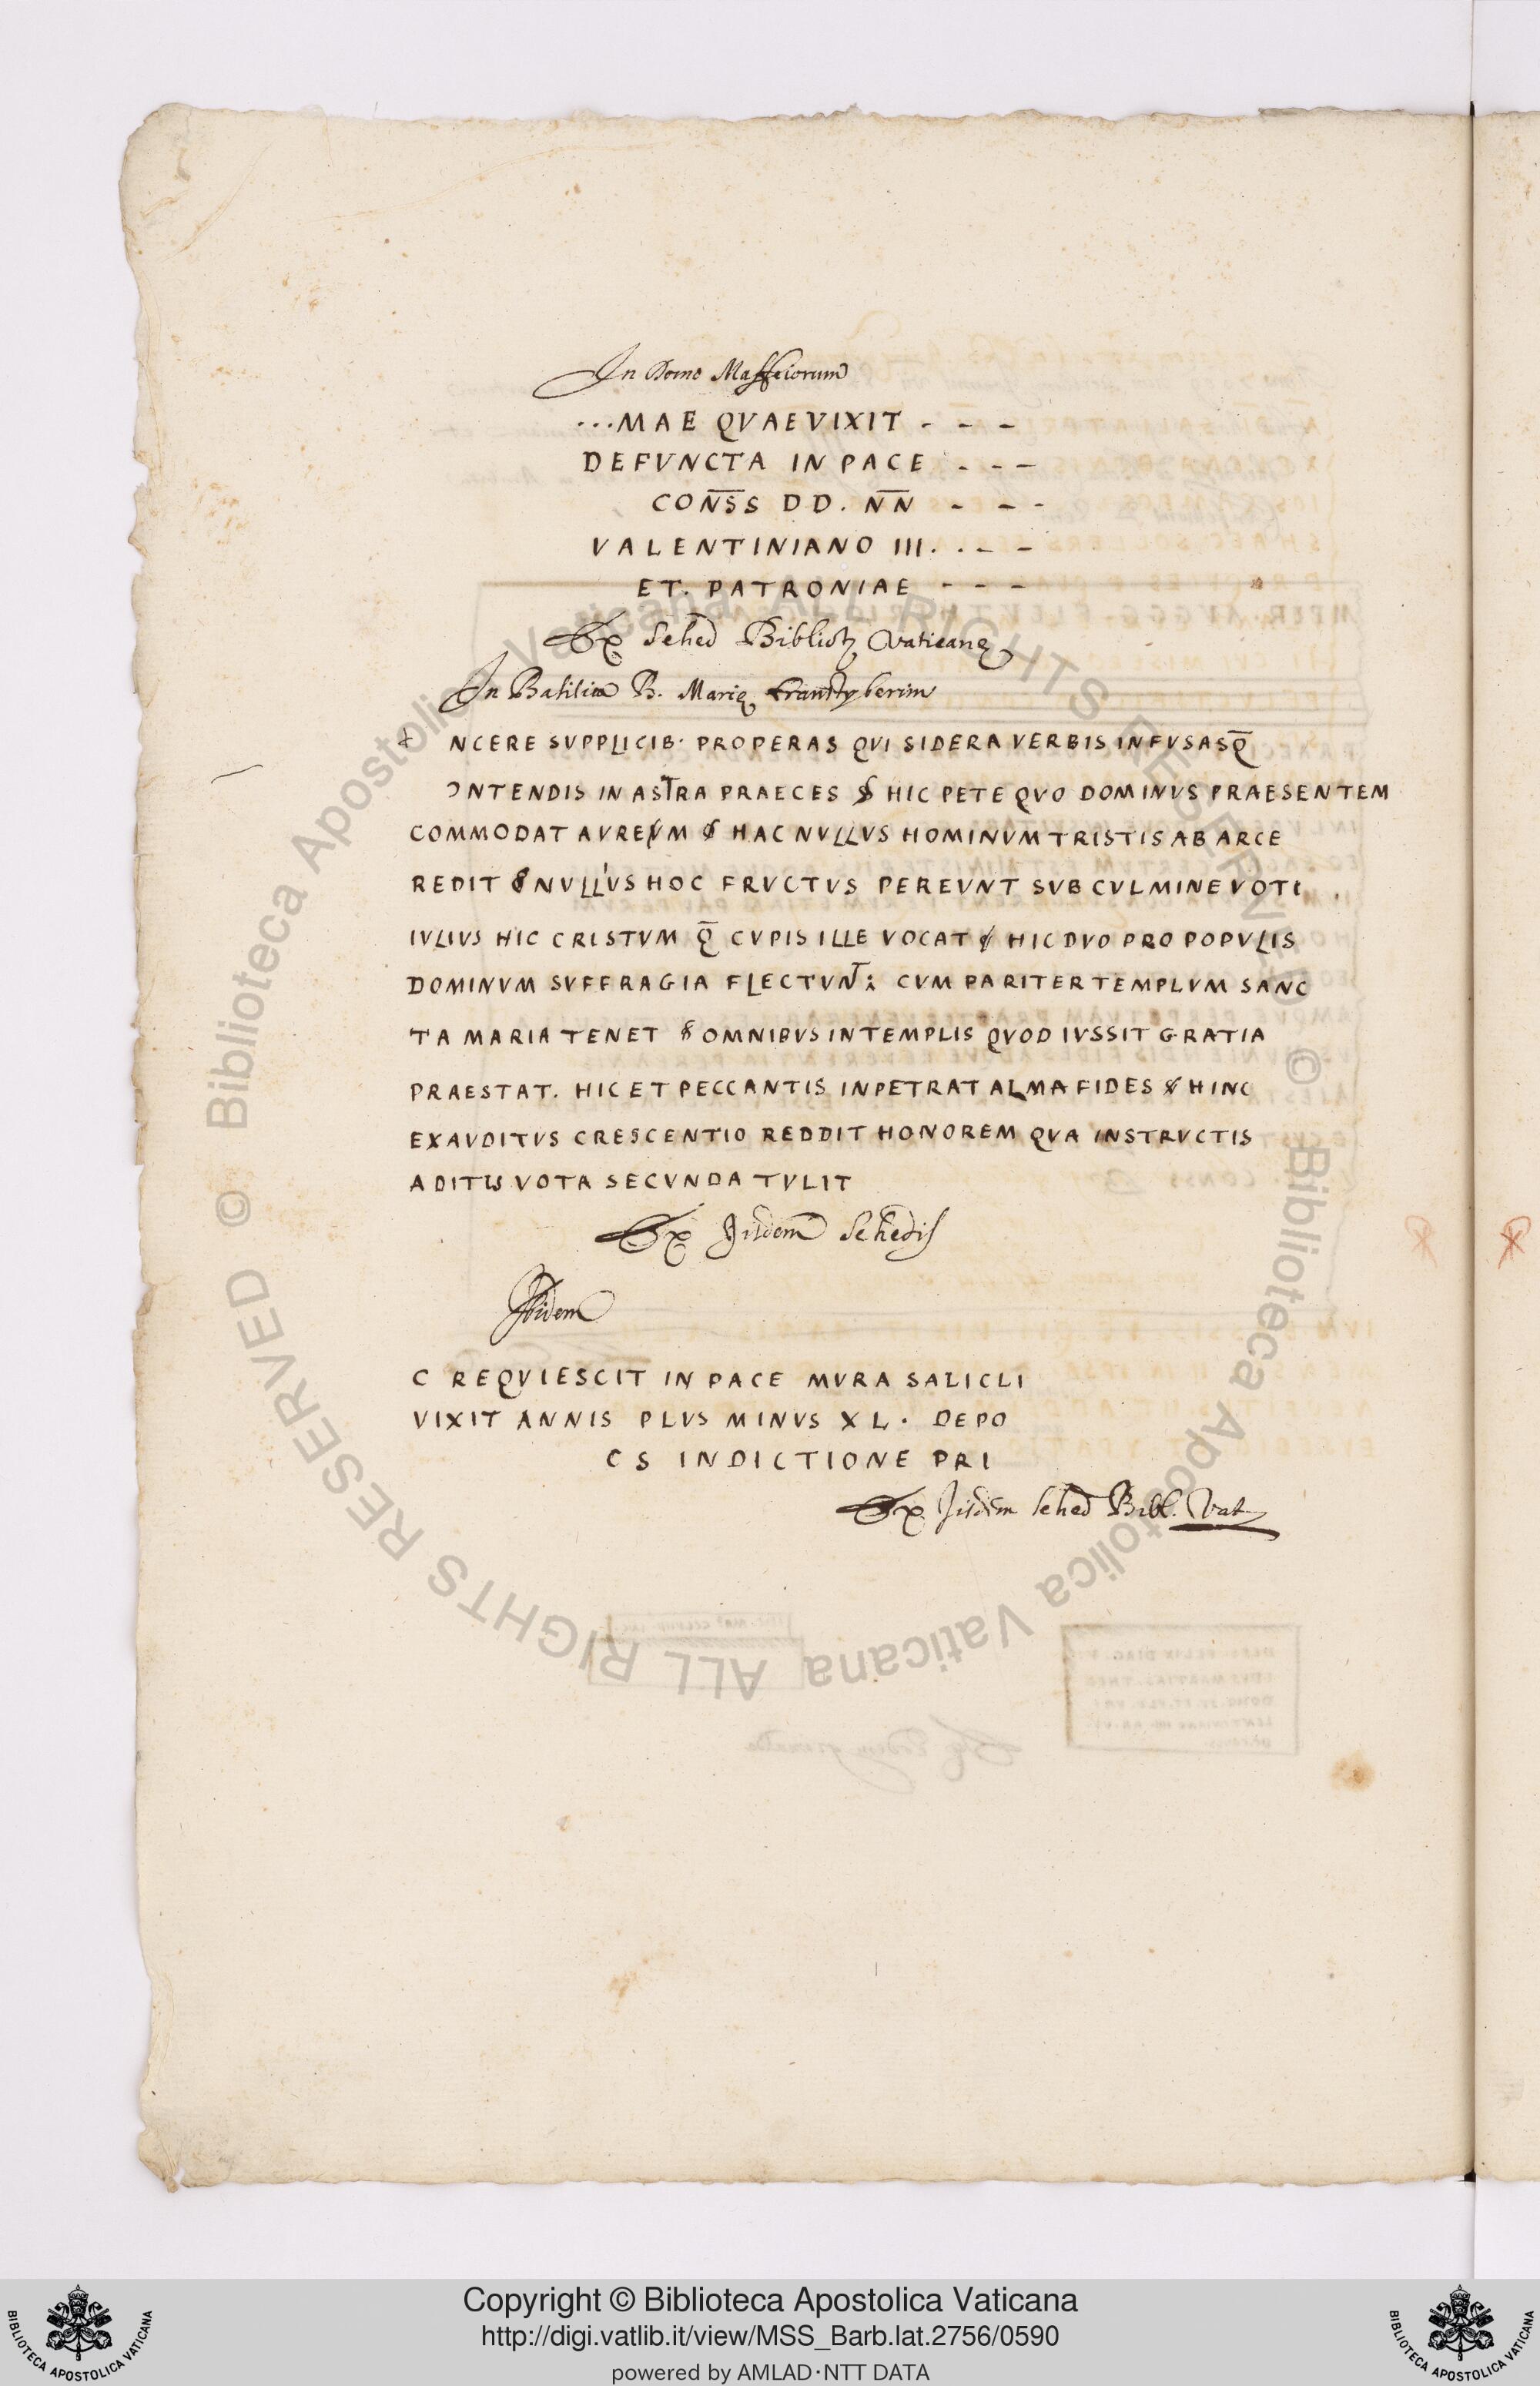 In Domo Maffeiorum
...MAE QVAE VIXIT - - -
DEFVNCTA IN PACE - - -
CON̅S̅S DD. N̅N̅ - - -
VALENTINIANO III. . - -
ET. PATRONIAE - - -
Ex Sched Biblioth Vaticanę
In Basilica B. Marię transtyberim
+ NCERE SVPPLICIB· PROPERAS QVI SIDERA VERBIS INFVSASQ̅
ƆNTENDIS IN ASTRA PRAECES HIC PETE QVO DOMINVS PRAESENTEM
COMMODAT AVREVM HAC NVLLVS HOMINVM TRISTIS AB ARCE
REDIT NVLLIVS HOC FRVCTVS PEREVNT SVB CVLMINE VOTI
IVLIVS HIC CRISTVM Q̅ CVPIS ILLE VOCAT HIC DVO PRO POPVLIS
DOMINVM SVFFRAGIA FLECTVNT: CVM PARITER TEMPLVM SANC
TA MARIA TENET OMNIBVS IN TEMPLIS QVOD IVSSIT GRATIA
PRAESTAT. HIC ET PECCANTIS INPETRAT ALMA FIDES HINC
EXAVDITVS CRESCENTIO REDDIT HONOREM QVA INSTRVCTIS
ADITIS VOTA SECVNDA TVLIT
Ex Jisdem Schedis
Ibidem
C REQVIESCIT IN PACE MVRA SALICLI
VIXIT ANNIS PLVS MINVS XL. DEPO
CS INDICTIONE PRI
Ex Jisdem Sched Bibl. Vat
Biblioteca Apostolica Vaticana ALL RIGHTS RESERVED ©
Biblioteca Apostolica Vaticana ALL RIGHTS RESERVED ©
Copyright © Biblioteca Apostolica Vaticana
http://digi.vatlib.it/view/MSS_Barb.lat.2756/0590
powered by AMLAD·NTT DATA
BIBLIOTECA APOSTOLICA VATICANA
BIBLIOTECA APOSTOLICA VATICANA